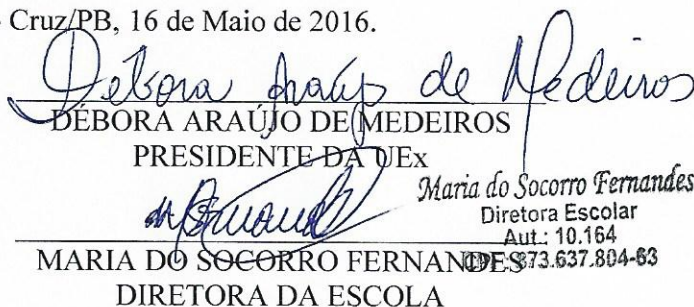 Cruz/PB, 16 de Maio de 2016.
Débora Araújo de Medeiros
DÉBORA ARAÚJO DE MEDEIROS
PRESIDENTE DA UEx
Maria do Socorro Fernandes
Diretora Escolar
Aut.: 10.164
873.637.804-63
MARIA DO SOCORRO FERNANDES
DIRETORA DA ESCOLA